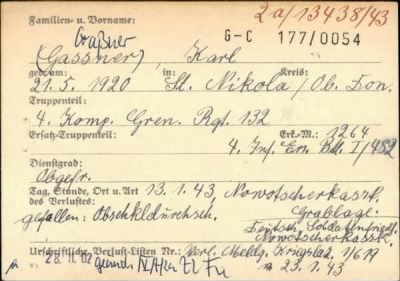 2a/13438/43
Familien- u. Vorname:
Graßner
G-C 177/0054
(Gassner), Karl
geb. am: in: Kreis:
21.5.1920 St. Nikola / Ob. Don.
Truppenteil:
4. Komp. Gren. Rgt. 132
Ersatz-Truppenteil: Erk.-M.: 1264
4. Inf. Ers. Btl. I/482
Dienstgrad:
Obgefr.
Tag, Stunde, Ort u. Art des Verlustes: 13.1.43, Nowotscherkassk.
gefallen: Grablage:
Deutsch. Soldatenfriedh.
Nowotscherkassk.
Urschriftliche Verlust-Listen Nr.: Verl. Meldg. Kriegslaz. 1/619
23.1.43